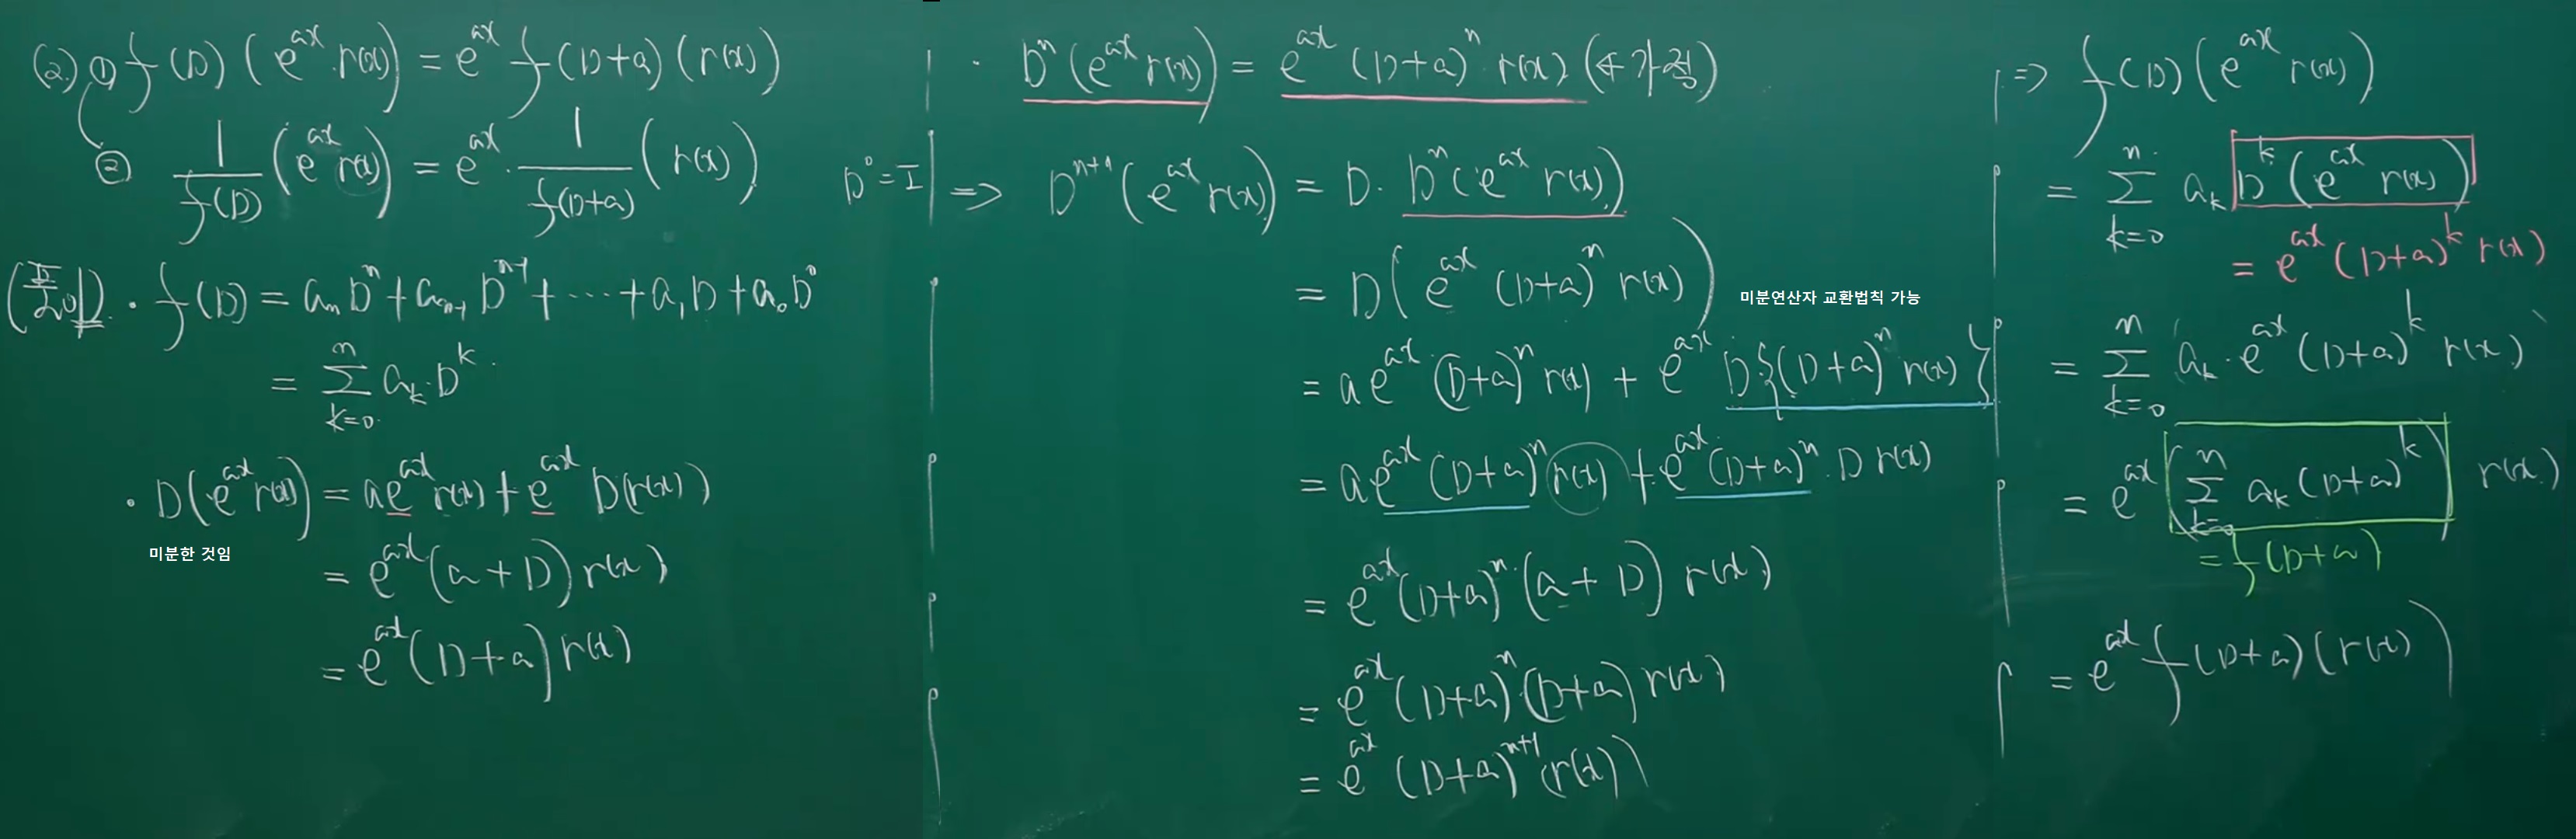 (2) ① f(D)(e^{ax} r(x)) = e^{ax} f(D+a)(r(x))
② \frac{1}{f(D)}(e^{ax} r(x)) = e^{ax} · \frac{1}{f(D+a)}(r(x))
D^0 = I
(풀이) · f(D) = a_n D^n + a_{n-1} D^{n-1} + ··· + a_1 D + a_0 D^0
= \sum_{k=0}^{n} a_k · D^k
· D(e^{ax} r(x)) = a e^{ax} r(x) + e^{ax} D(r(x))
미분한 것임
= e^{ax}(a+D) r(x)
= e^{ax}(D+a) r(x)
· D^n(e^{ax} r(x)) = e^{ax} (D+a)^n r(x) (수가정)
=> D^{n+1}(e^{ax} r(x)) = D · D^n(e^{ax} r(x))
= D(e^{ax} (D+a)^n r(x))
미분연산자 교환법칙 가능
= a e^{ax} (D+a)^n r(x) + e^{ax} D{(D+a)^n r(x)}
= a e^{ax} (D+a)^n r(x) + e^{ax} (D+a)^n · D r(x)
= e^{ax} (D+a)^n · (a+D) r(x)
= e^{ax} (D+a)^n (D+a) r(x)
= e^{ax} (D+a)^{n+1} (r(x))
=> f(D)(e^{ax} r(x))
= \sum_{k=0}^{n} a_k D^k (e^{ax} r(x))
= e^{ax} (D+a)^k r(x)
= \sum_{k=0}^{n} a_k · e^{ax} (D+a)^k r(x)
= e^{ax} (\sum_{k=0}^{n} a_k (D+a)^k) r(x)
= f(D+a)
= e^{ax} f(D+a)(r(x))